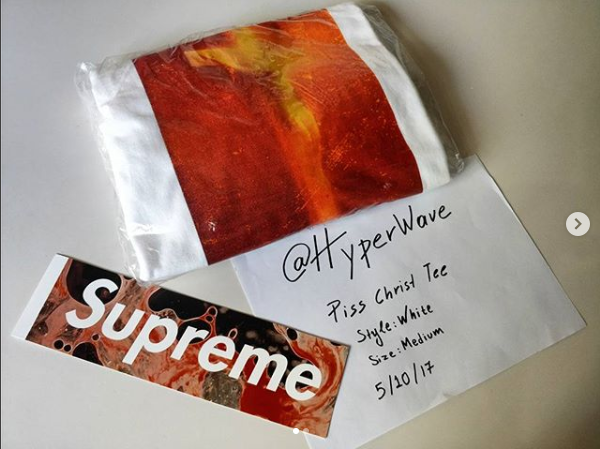 @HyperWave
Piss Christ Tee
Style:White
Size:Medium
5/10/17
Supreme